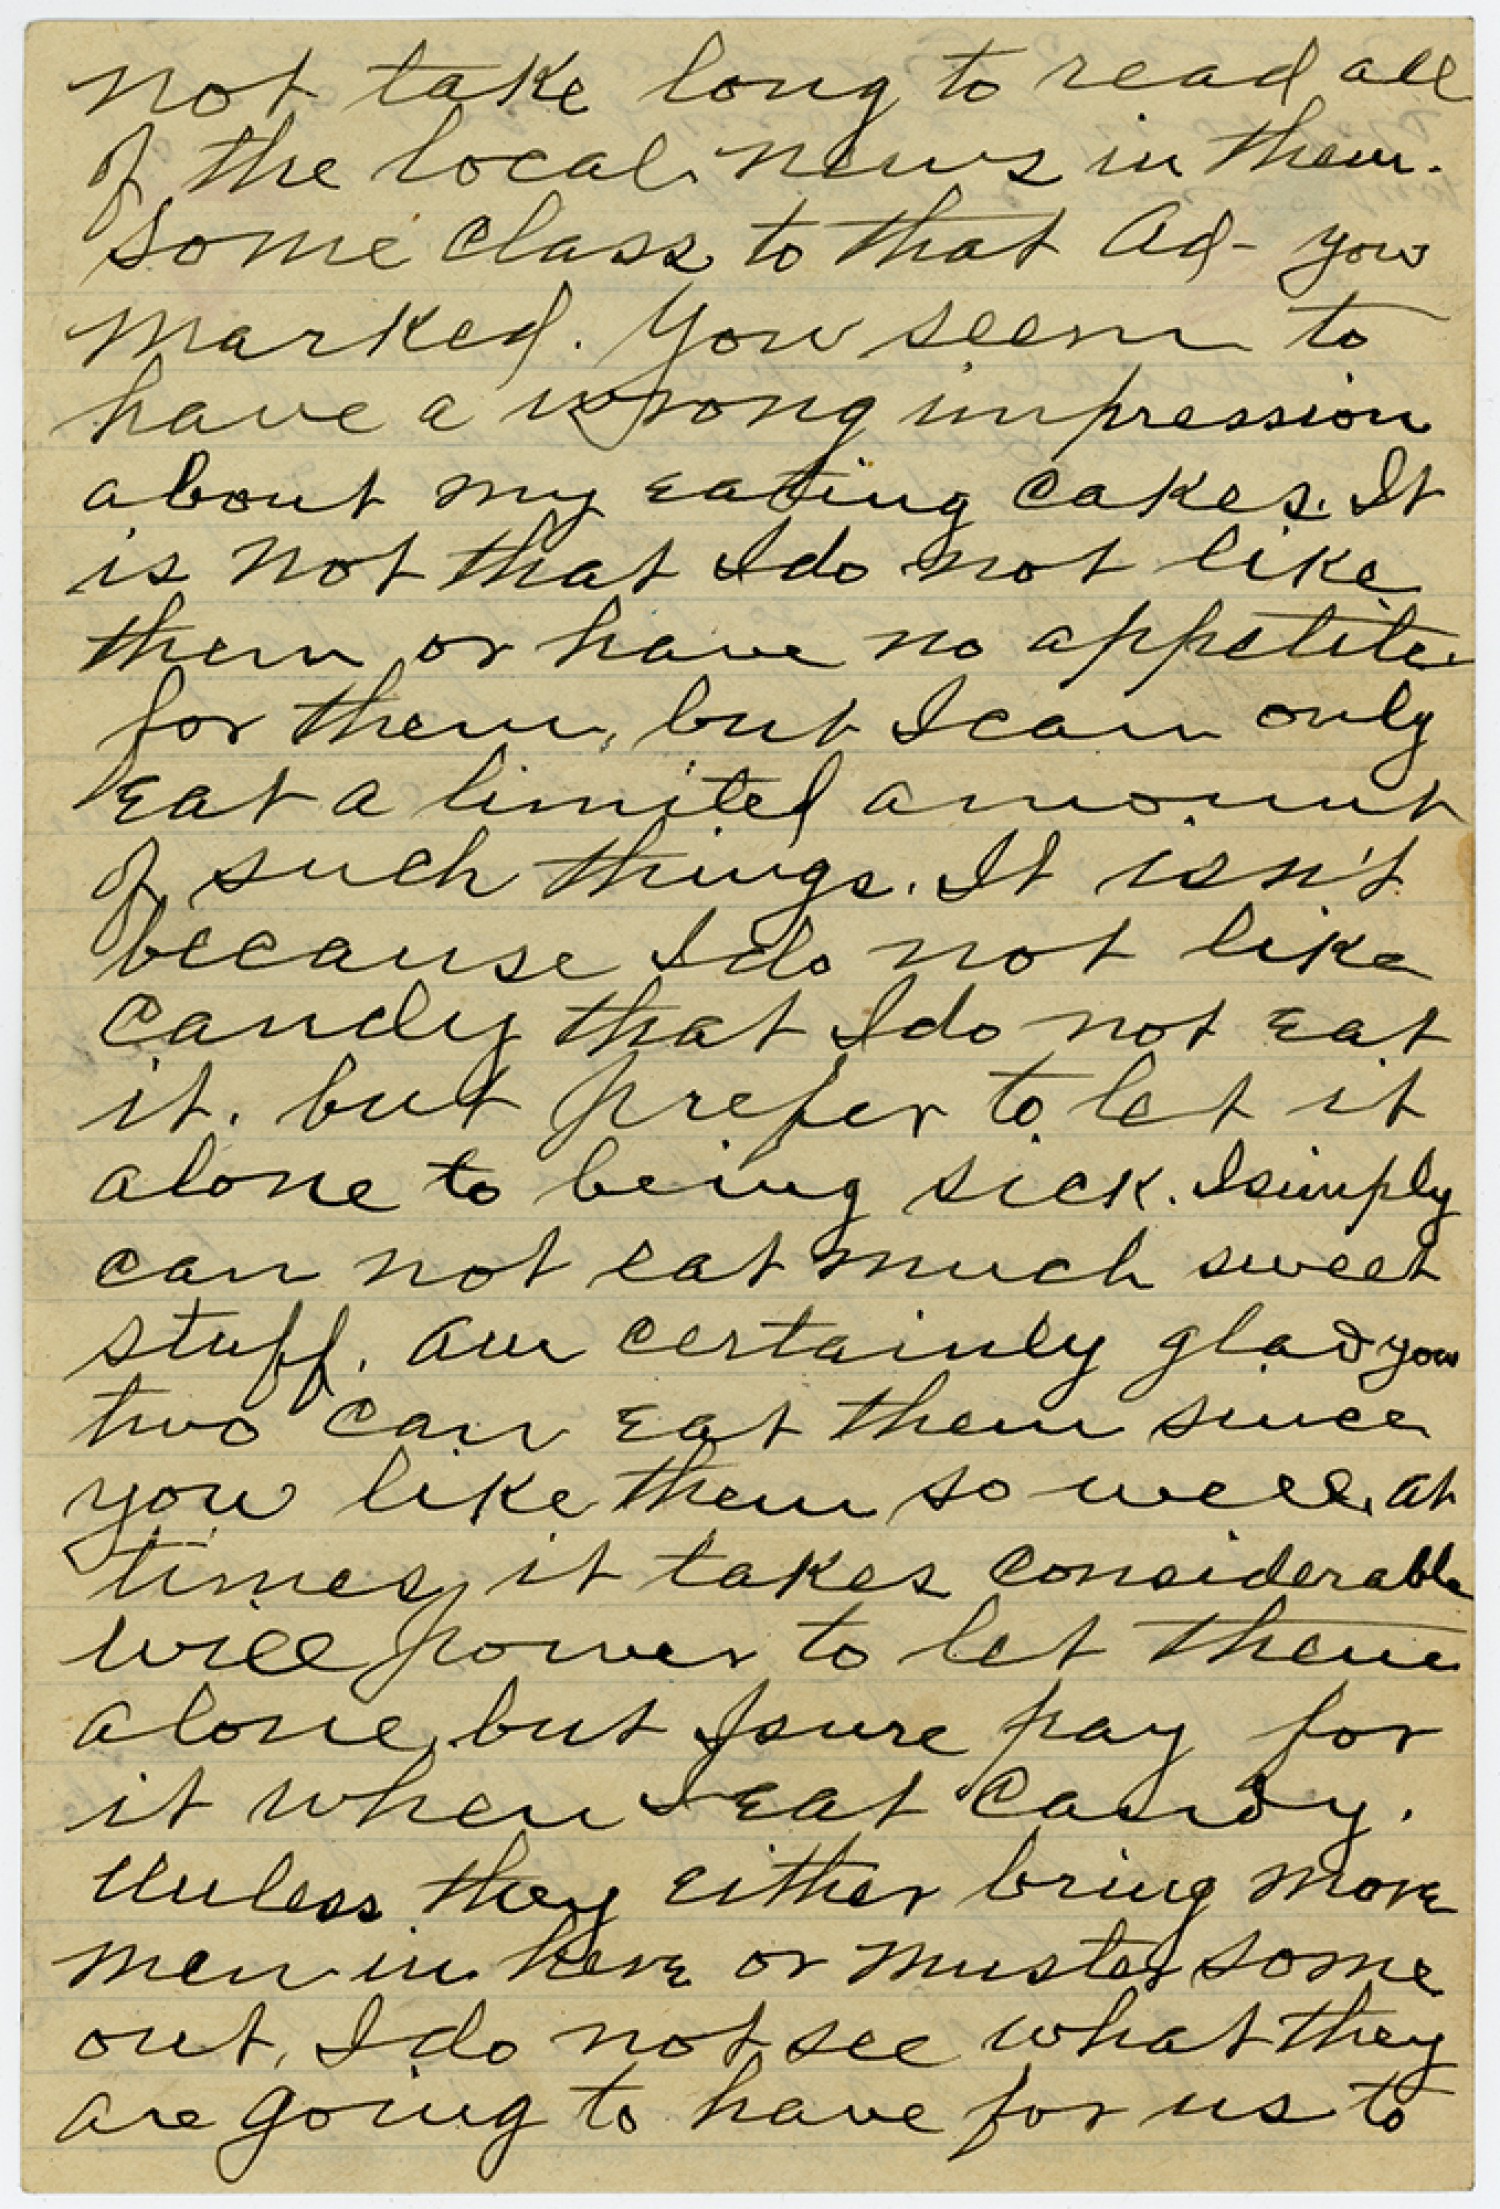 not take long to read all
of the local news in them.
Some class to that Ad- you
marked. You seem to
have a wrong impression
about my eating cakes. It
is not that I do not like
them or have no appetite
for them, but I can only
eat a limited amount
of such things. It isn't
because I do not like
candy that I do not eat
it. but prefer to let it
alone to being sick. I simply
can not eat much sweet
stuff. Am certainly glad you
two can eat them since
you like them so well. At
times, it takes considerable
will power to let them
alone, but I sure pay for
it when I eat candy.
Unless they either bring more
men in here or muster some
out, I do not see what they
are going to have for us to